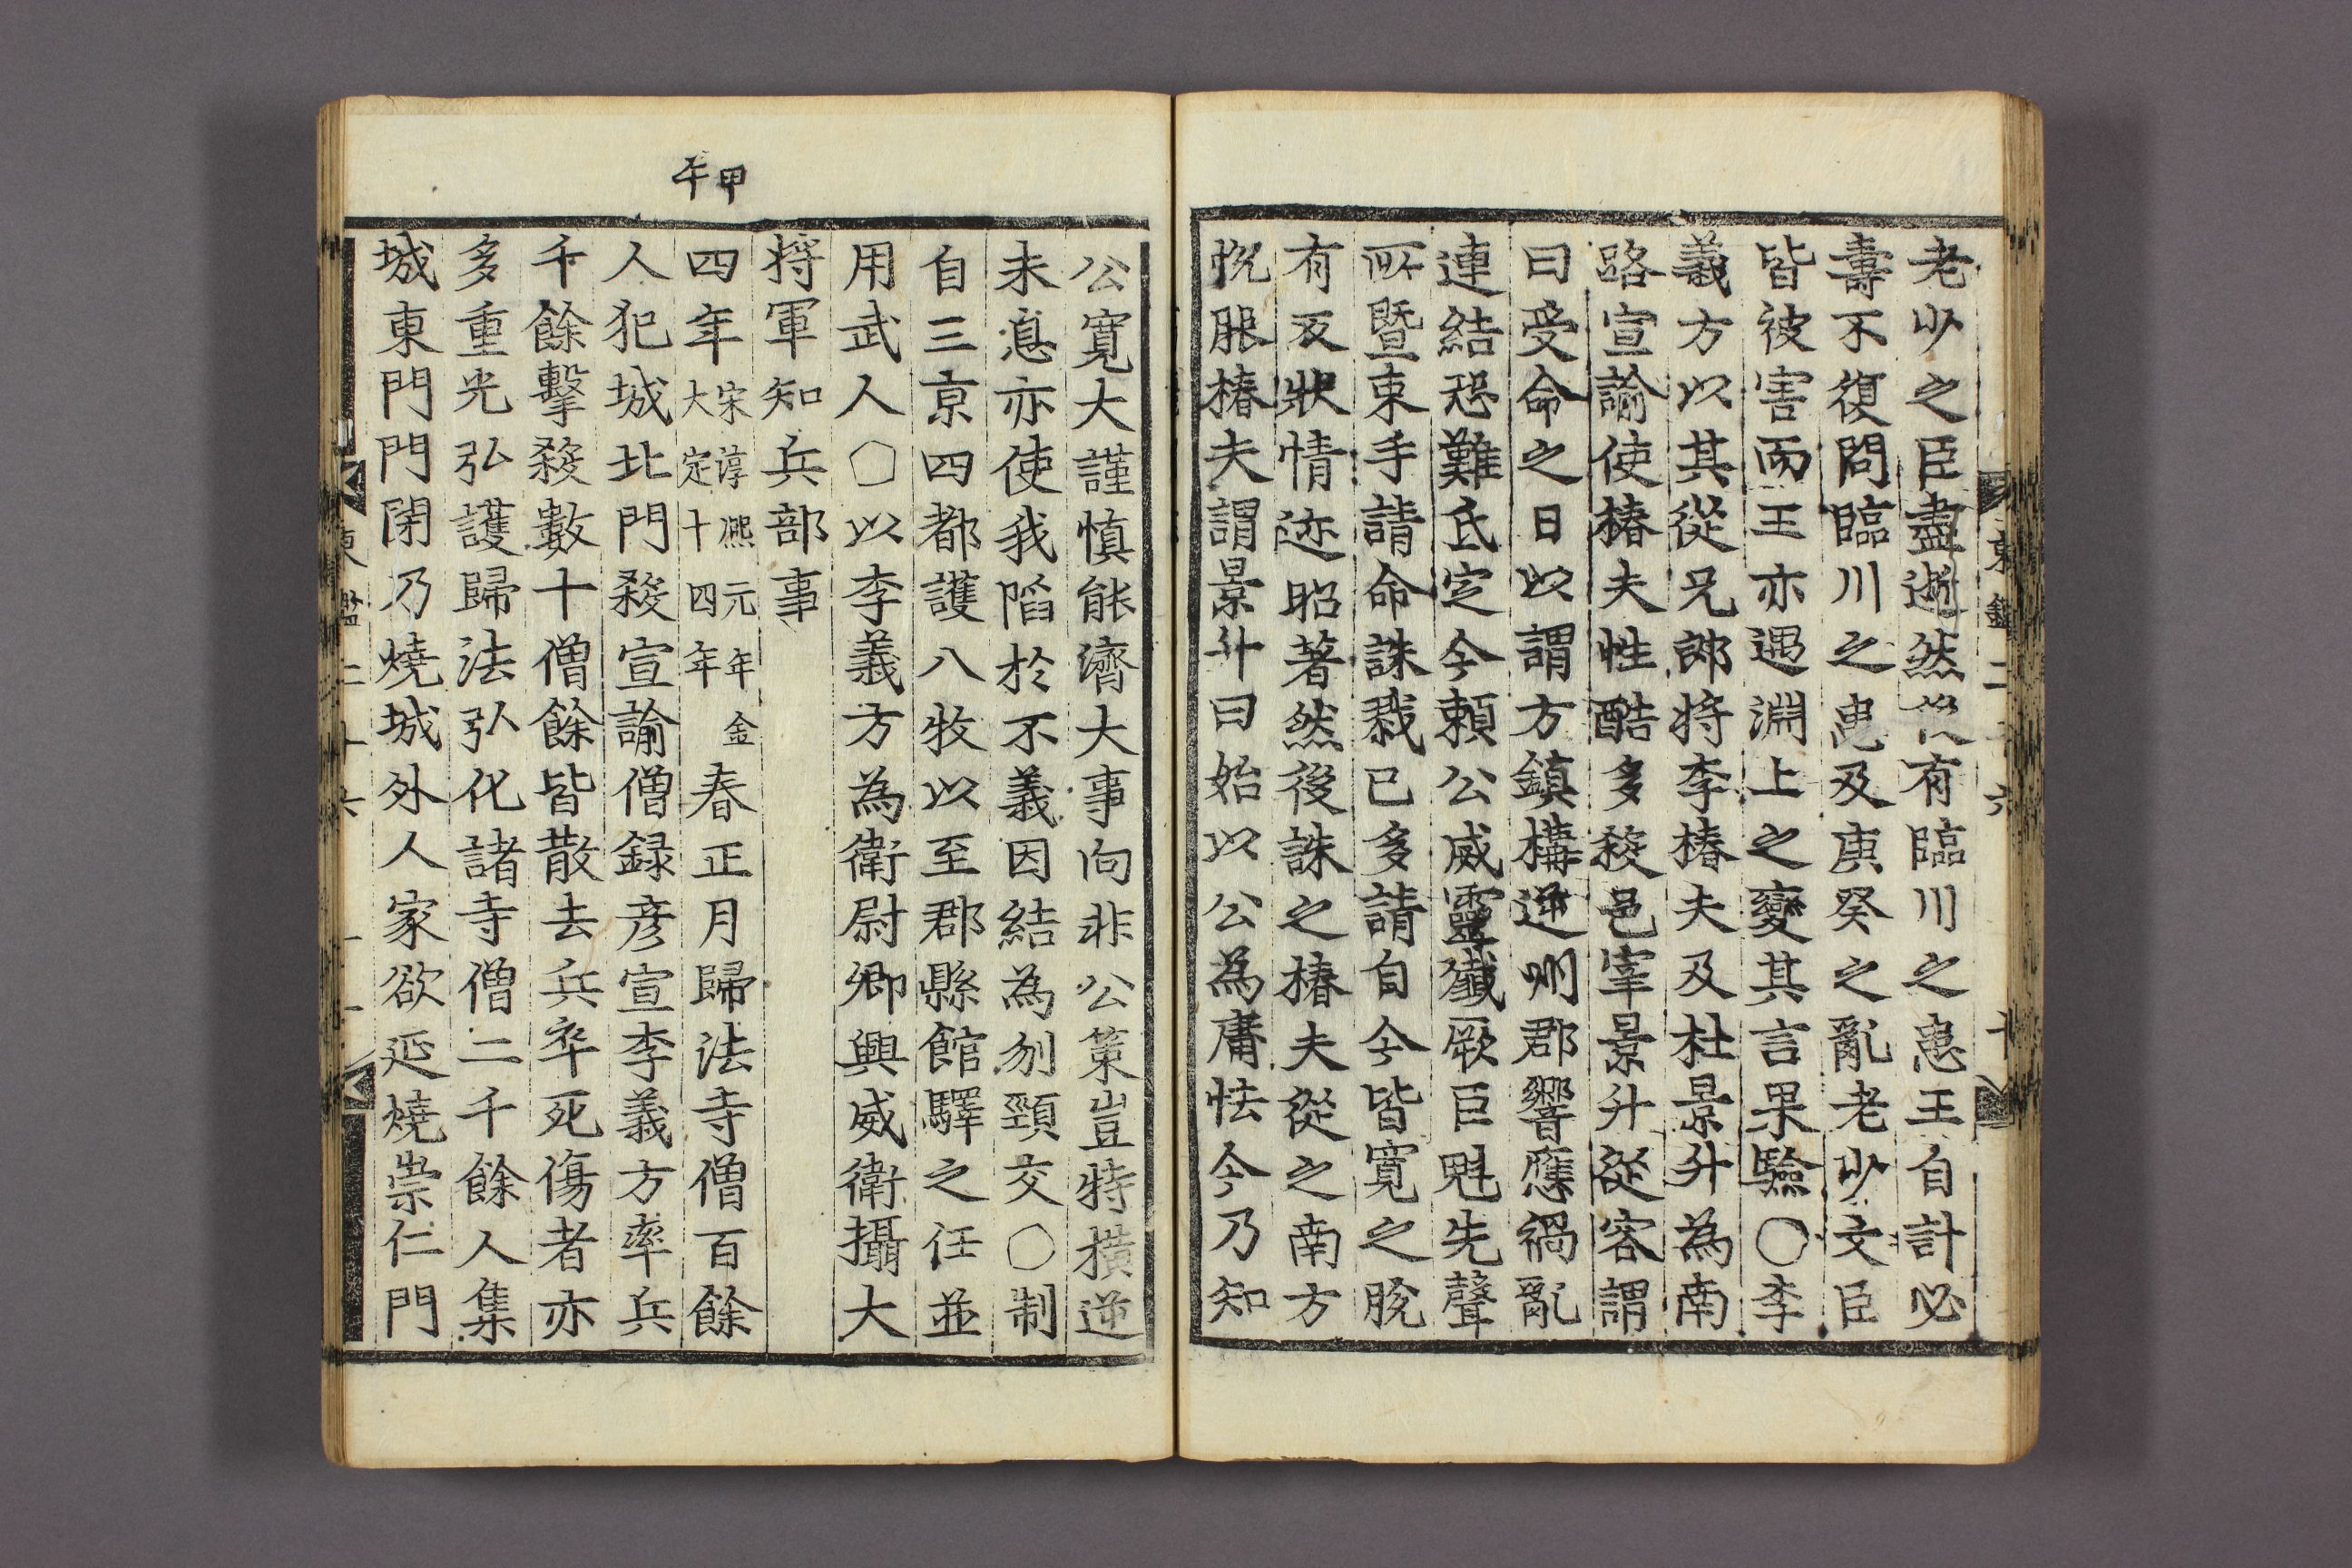 老少之臣盡逝然後有臨川之患王自計必
壽不復問臨川之患及庚癸之亂老少文臣
皆被害而王亦遇淵上之變其言果驗○李
義方以其從兄郎將李椿夫及杜景升為南
路宣諭使椿夫性酷多殺邑宰景升從容謂
曰受命之日以謂方鎮構逆州郡響應禍亂
連結恐難底定今賴公威靈殲厥巨魁先聲
所暨束手請命誅戮已多請自今皆寬之脫
有反狀情迹昭著然後誅之椿夫從之南方
悅服椿夫謂景升曰始以公為庸怯今乃知
公寬大謹慎能濟大事向非公策豈特橫逆
未息亦使我陷於不義因結為刎頸交○制
自三京四都護八牧以至郡縣館驛之任並
用武人○以李義方為衛尉卿興威衛攝大
將軍知兵部事
甲午
四年宋淳熙元年金大定十四年春正月歸法寺僧百餘
人犯城北門殺宣諭僧録彦宣李義方率兵
千餘擊殺數十僧餘皆散去兵卒死傷者亦
多重光弘護歸法弘化諸寺僧二千餘人集
城東門門閉乃燒城外人家欲延燒崇仁門